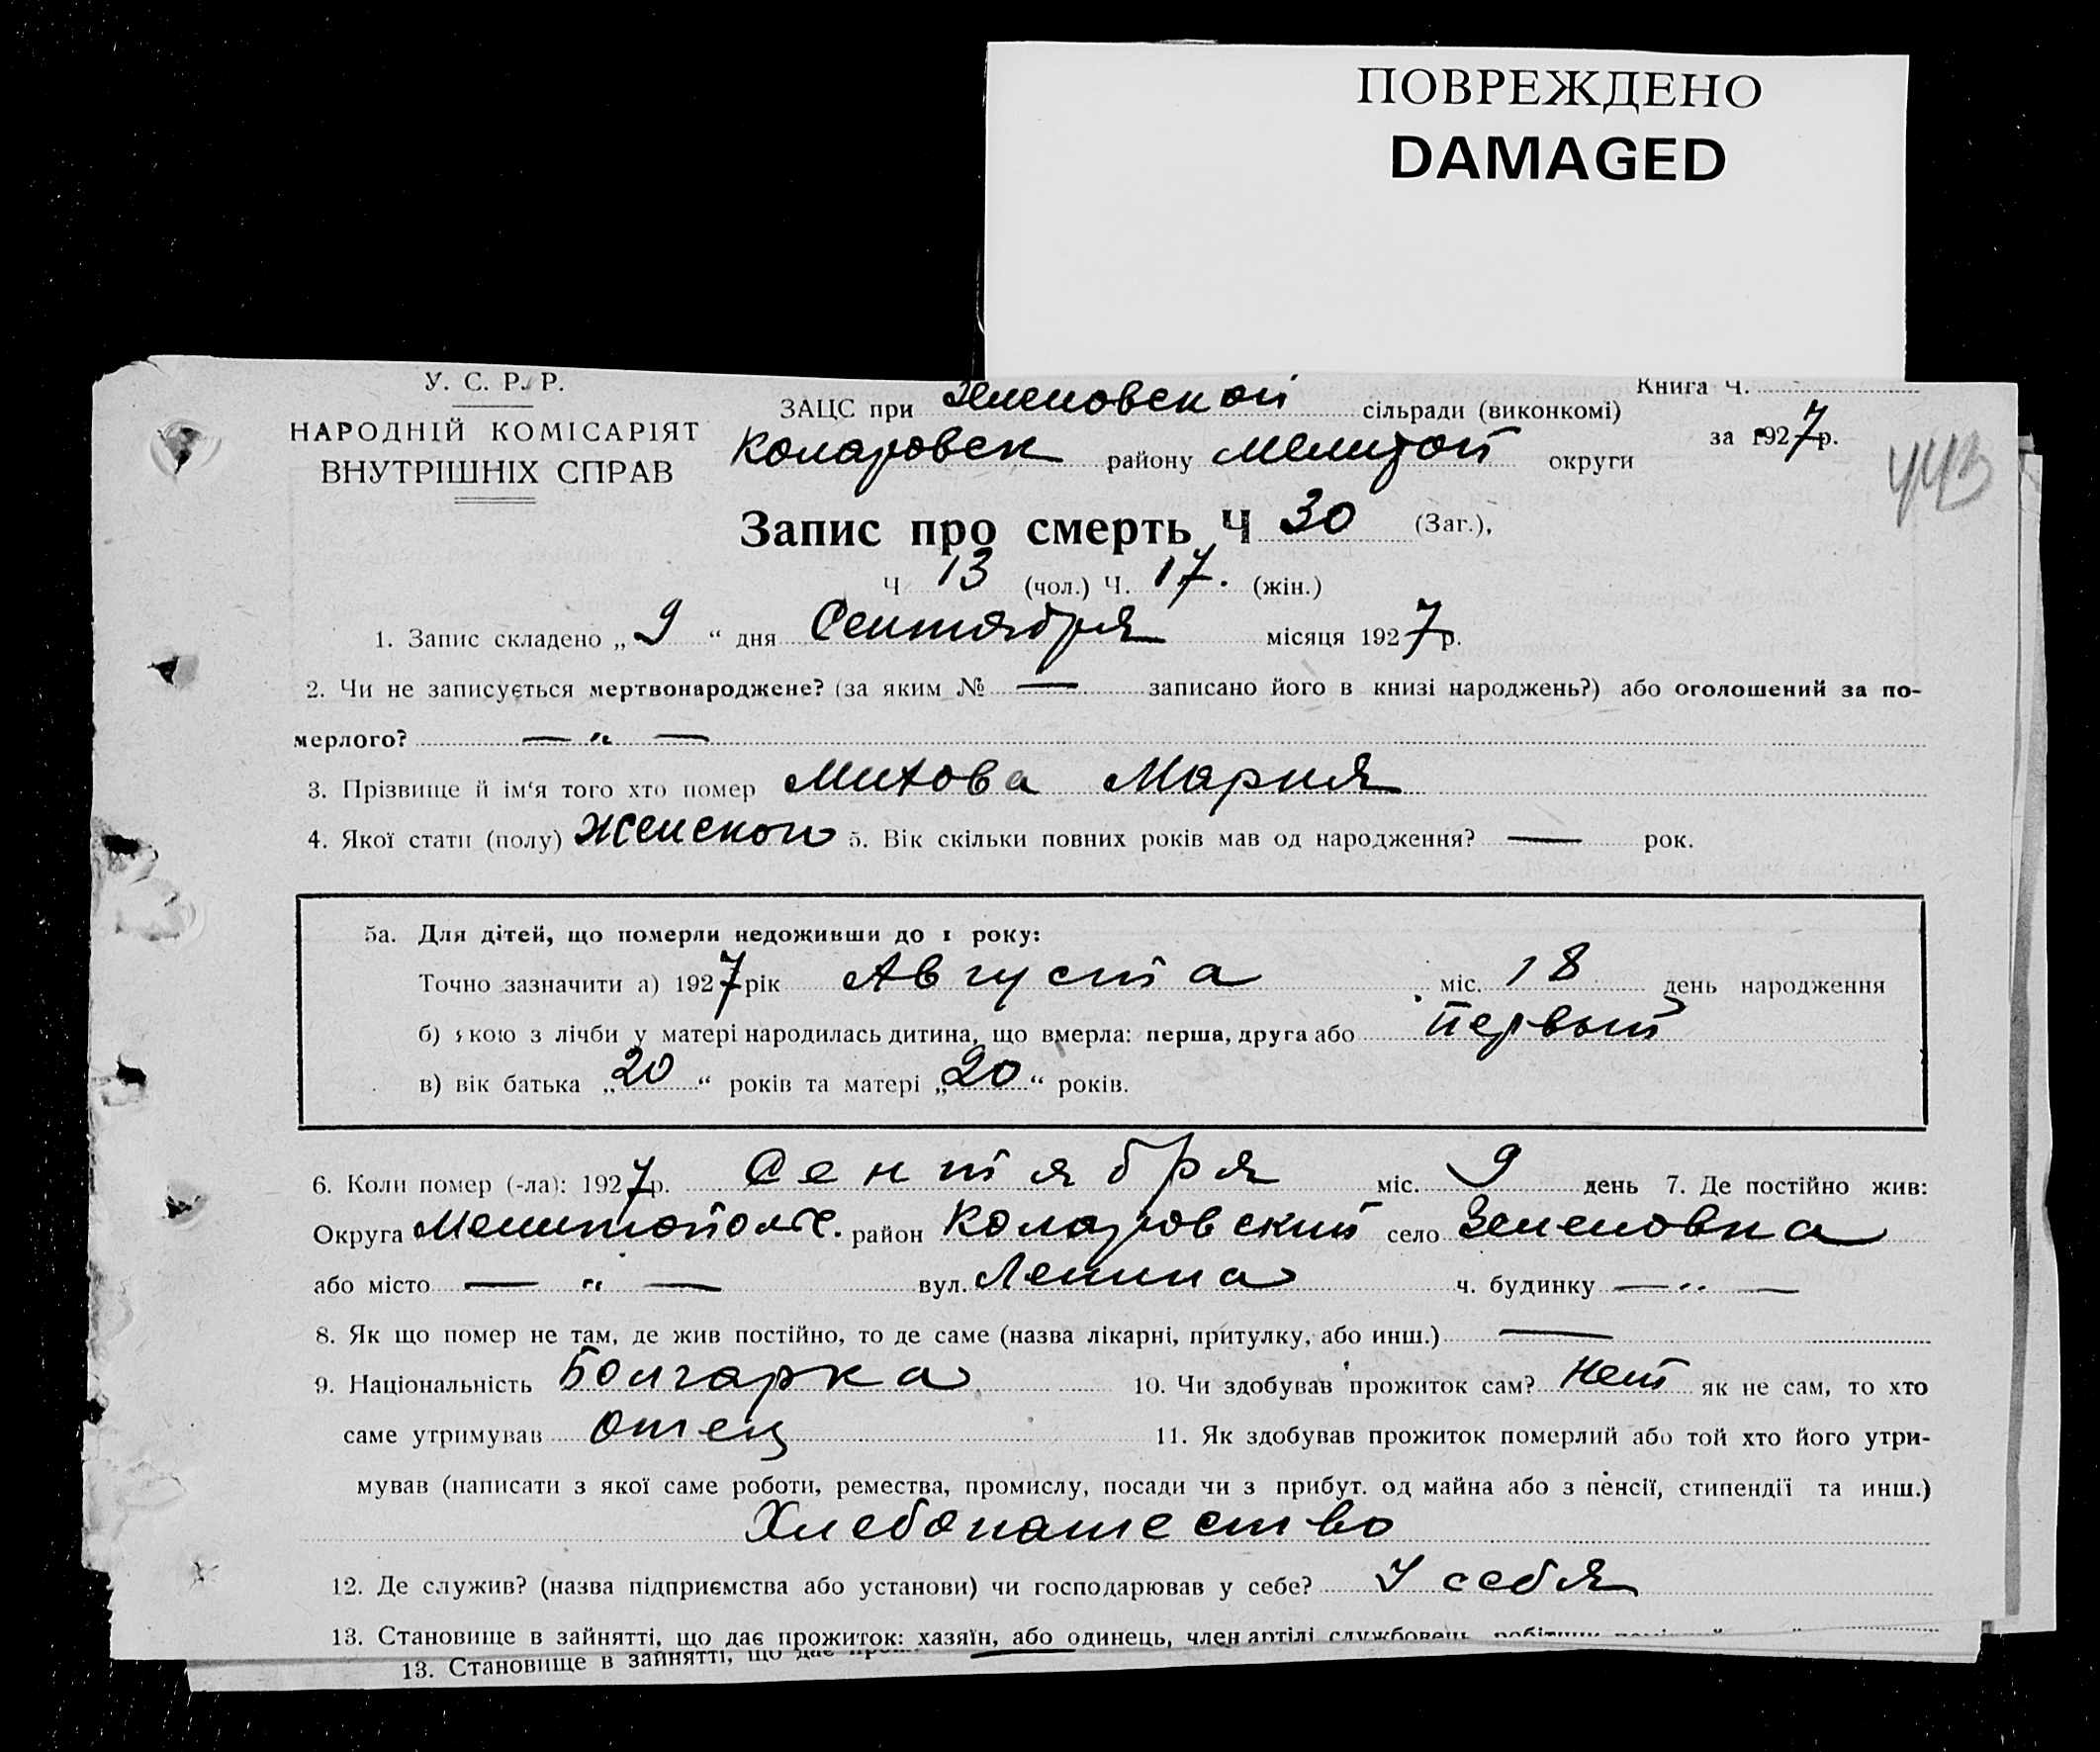 ПОВРЕЖДЕНО
DAMAGED
У. С. Р. Р.
НАРОДНІЙ КОМІСАРІЯТ
ВНУТРІШНІХ СПРАВ
Книга Ч.
ЗАЦС при Зеленовской сільради (виконкомі)
за 1927 р.
Коларовск району Мелитоп округи
443
Запис про смерть Ч 30 (Заг.),
Ч 13 (чол.) Ч. 17. (жін.)
1. Запис складено „ 9 “ дня Сентября місяця 1927 р.
2. Чи не записується мертвонароджене? (за яким № — записано його в книзі народжень?) або оголошений за по-
мерлого? — „ —
3. Прізвище й ім‘я того хто помер Митова Мария
4. Якої стати (полу) Женского 5. Вік скільки повних років мав од народження? — рок.
5а. Для дітей, що померли недоживши до 1 року:
Точно зазначити а) 1927 рік Августа міс. 18 день народження
б) якою з лічби у матері народилась дитина, що вмерла: перша, друга або Первый
в) вік батька „20“ років та матері „20“ років.
6. Коли помер (-ла): 1927 р. Сентября міс. 9 день 7. Де постійно жив:
Округа Мелитопольс. район Коларовский село Зеленовка
або місто — „ — вул. Ленина ч. будинку — „ —
8. Як що помер не там, де жив постійно, то де саме (назва лікарні, притулку, або инш.) —
9. Національність Болгарка 10. Чи здобував прожиток сам? Нет як не сам, то хто
саме утримував отец 11. Як здобував прожиток померлий або той хто його утри-
мував (написати з якої саме роботи, ремества, промислу, посади чи з прибут. од майна або з пенсії, стипендії та инш.)
Хлебопашество
12. Де служив? (назва підприємства або установи) чи господарював у себе? У себя
13. Становище в зайнятті, що дає прожиток: хазяїн, або одинець, член артілі службовець, робітник
13. Становище в зайнятті, що дає